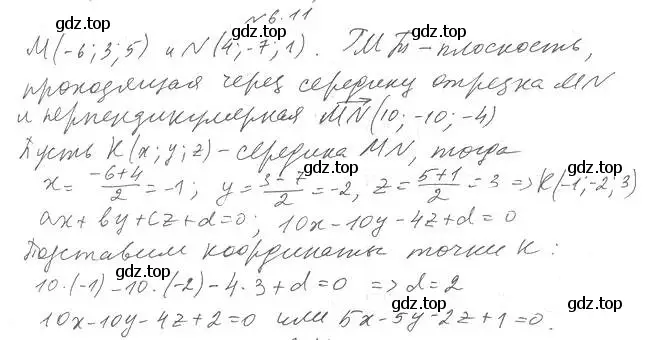 №6.11
gdz.top gdz.top
M(-6; 3; 5) и N(4; -7; 1). ГМТ - плоскость,
проходящая через середину отрезка MN
gdz.top gdz.top
и перпендикулярная MN(10; -10; -4)
Пусть K(x; y; z) - середина MN, тогда
gdz.top gdz.top
x = (-6+4)/2 = -1; y = (3-7)/2 = -2, z = (5+1)/2 = 3 => K(-1; -2; 3)
ax + by + cz + d = 0; 10x - 10y - 4z + d = 0
gdz.top gdz.top
Подставим координаты точки K:
10·(-1) - 10·(-2) - 4·3 + d = 0 => d = 2
gdz.top gdz.top
10x - 10y - 4z + 2 = 0 или 5x - 5y - 2z + 1 = 0.